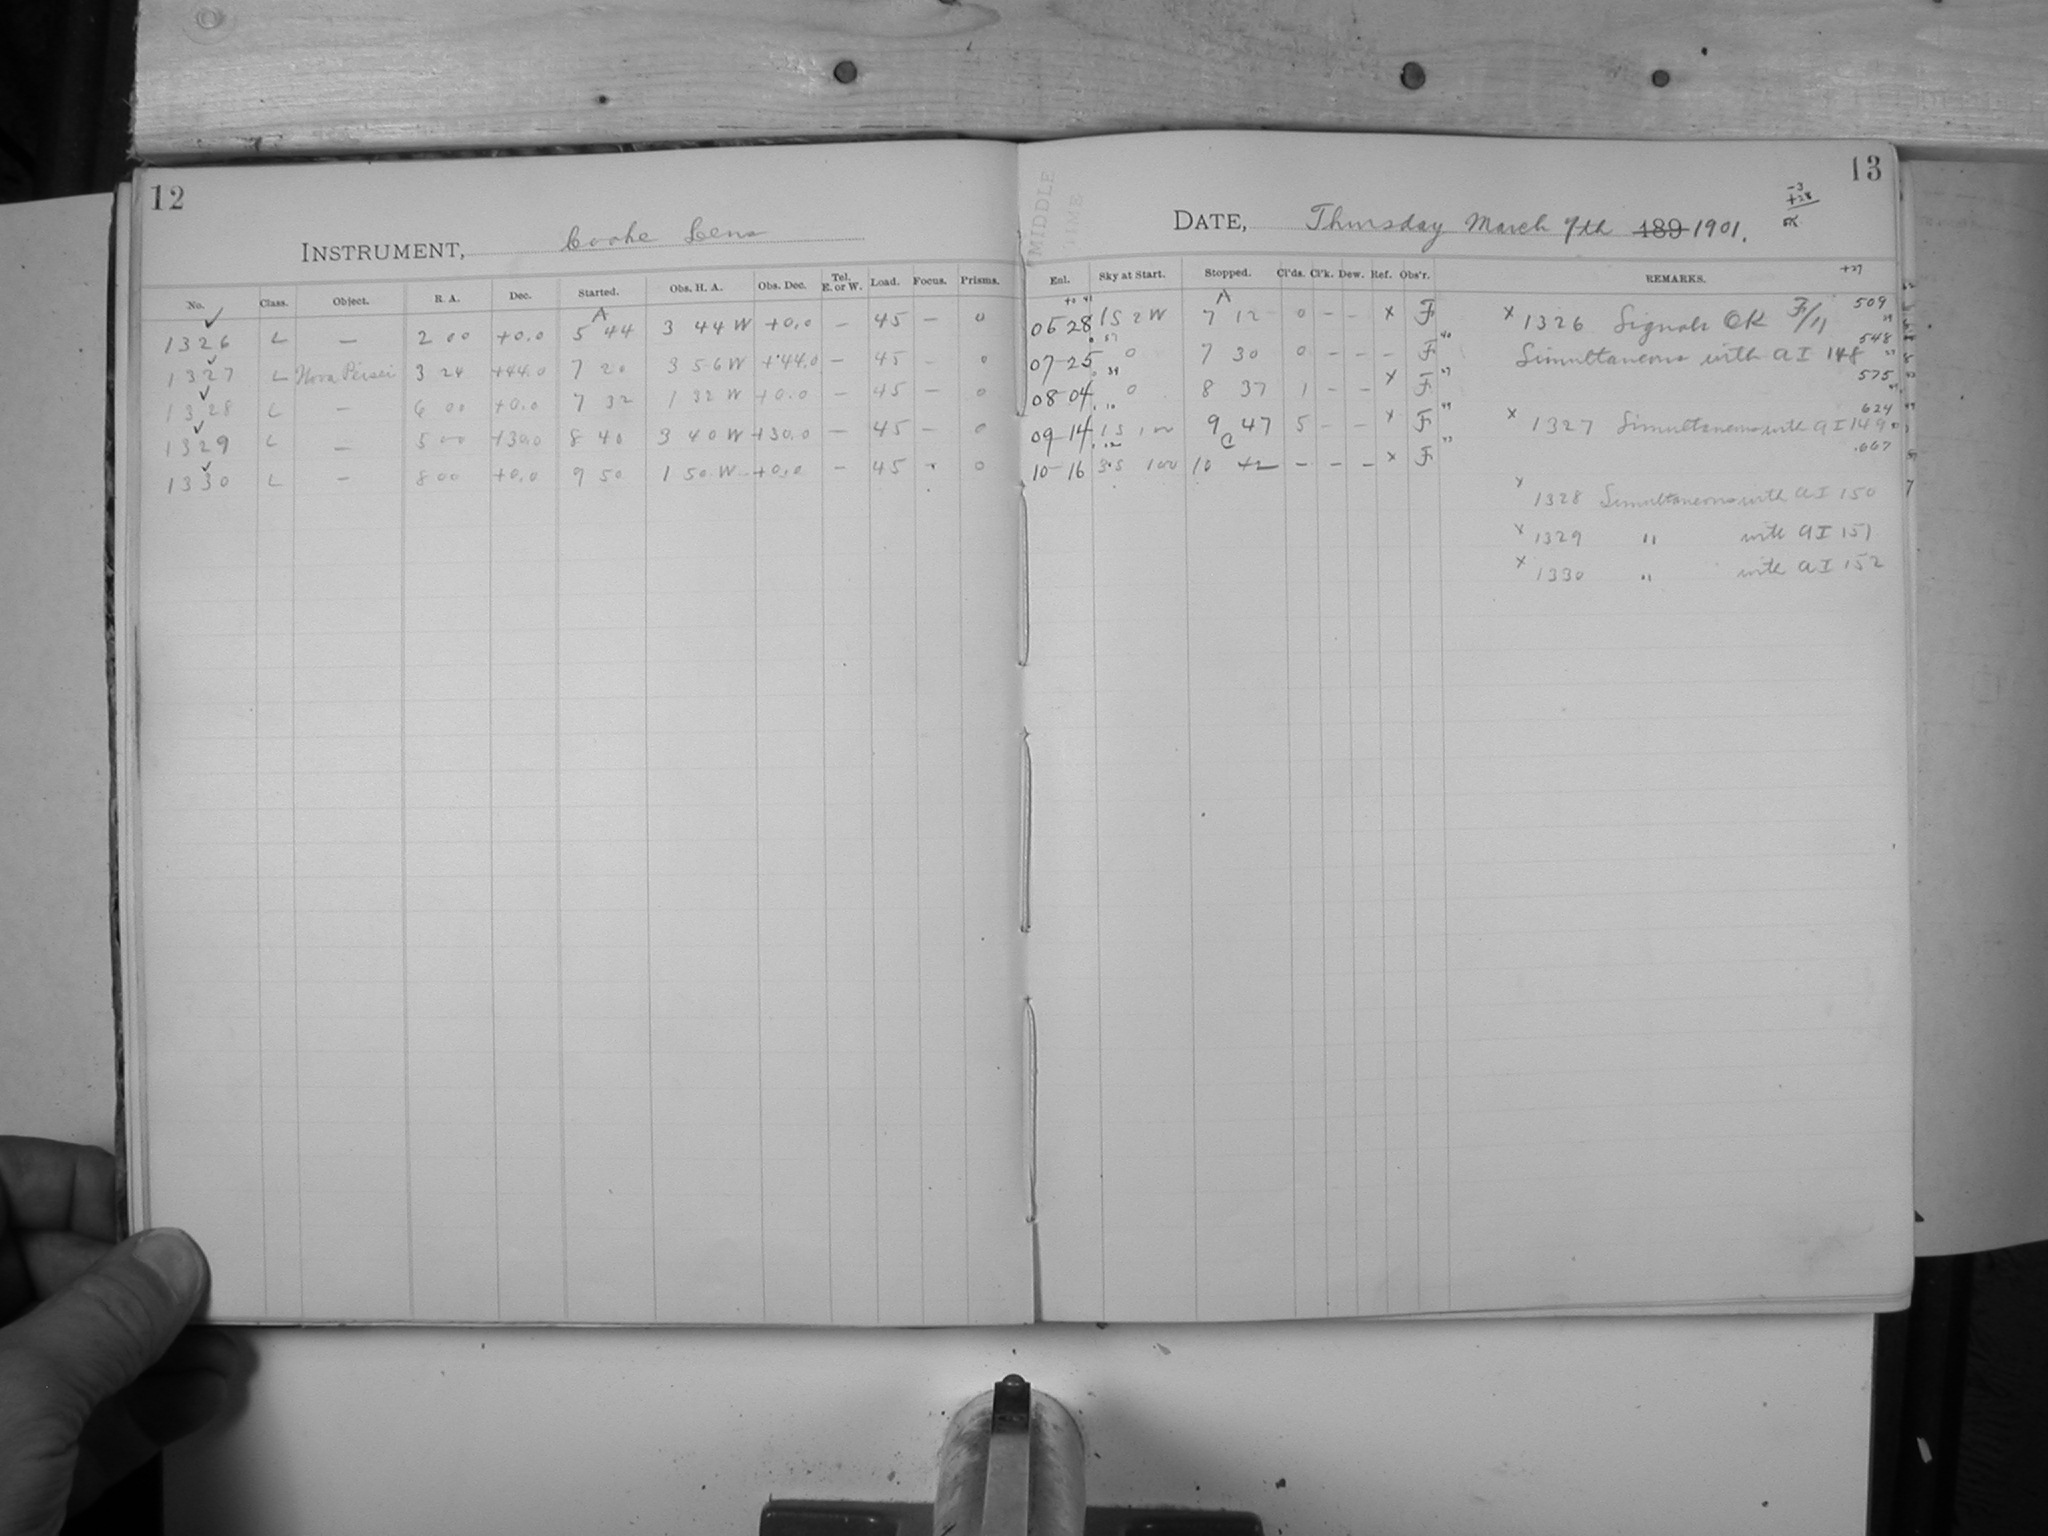 12
INSTRUMENT, Cooke Lens
No. Class. Object. R. A. Dec. Started. Obs. H. A. Obs. Dec. Tel. E. or W. Load. Focus. Prisms.
A
1326 L — 2 00 +0.0 5 44 3 44 W +0.0 — 45 — 0
1327 L Nova Persei 3 24 +44.0 7 20 3 56 W +44.0 — 45 — 0
1328 L — 6 00 +0.0 7 32 1 32 W +0.0 — 45 — 0
1329 L — 5 00 +30.0 8 40 3 40 W +30.0 — 45 — 0
1330 L — 8 00 +0.0 9 50 1 50 W +0.0 — 45 - 0
13
MIDDLE
TIME
-3
+28
DATE, Thursday March 7th 189 1901.
Enl. Sky at Start. Stopped. Cl'ds. Cl'k. Dew. Ref. Obs'r. REMARKS.
+27
A
06 28 1S 2W 7 12 0 — — x F x 1326 Signals OK F/11 509
548
07-25 0 7 30 0 — — — F Simultaneous with A I 148
575
08-04 0 8 37 1 — — x F
624
09-14 1S 100 9 47 5 — — x F x 1327 Simultaneous with A I 149
.667
C
10-16 3.5 100 10 42 — — — x F
x 1328 Simultaneous with A I 150
x 1329 " with A I 151
x 1330 " with A I 152